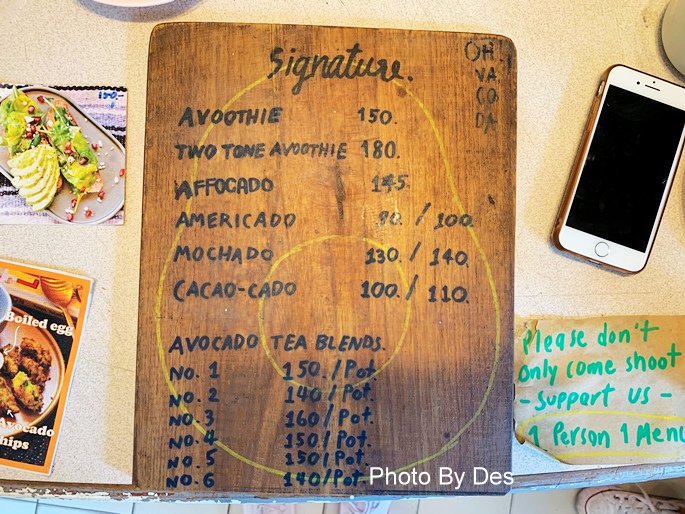 Signature.
OH
VA
CO
DA
AVOOTHIE 150.
TWO TONE AVOOTHIE 180.
AFFOGADO 145.
AMERICADO 90. / 100.
MOCHADO 130/ 140.
CACAO-CADO 100./ 110.
AVOCADO TEA BLENDS.
NO. 1 150./Pot.
NO. 2 140/Pot.
NO. 3 160/Pot.
NO. 4 150/Pot.
NO. 5 150/Pot.
NO. 6 140/Pot
Boiled egg
Avocado
Please don't
only come shoot
- support us -
1 Person 1 Menu
Photo By Des